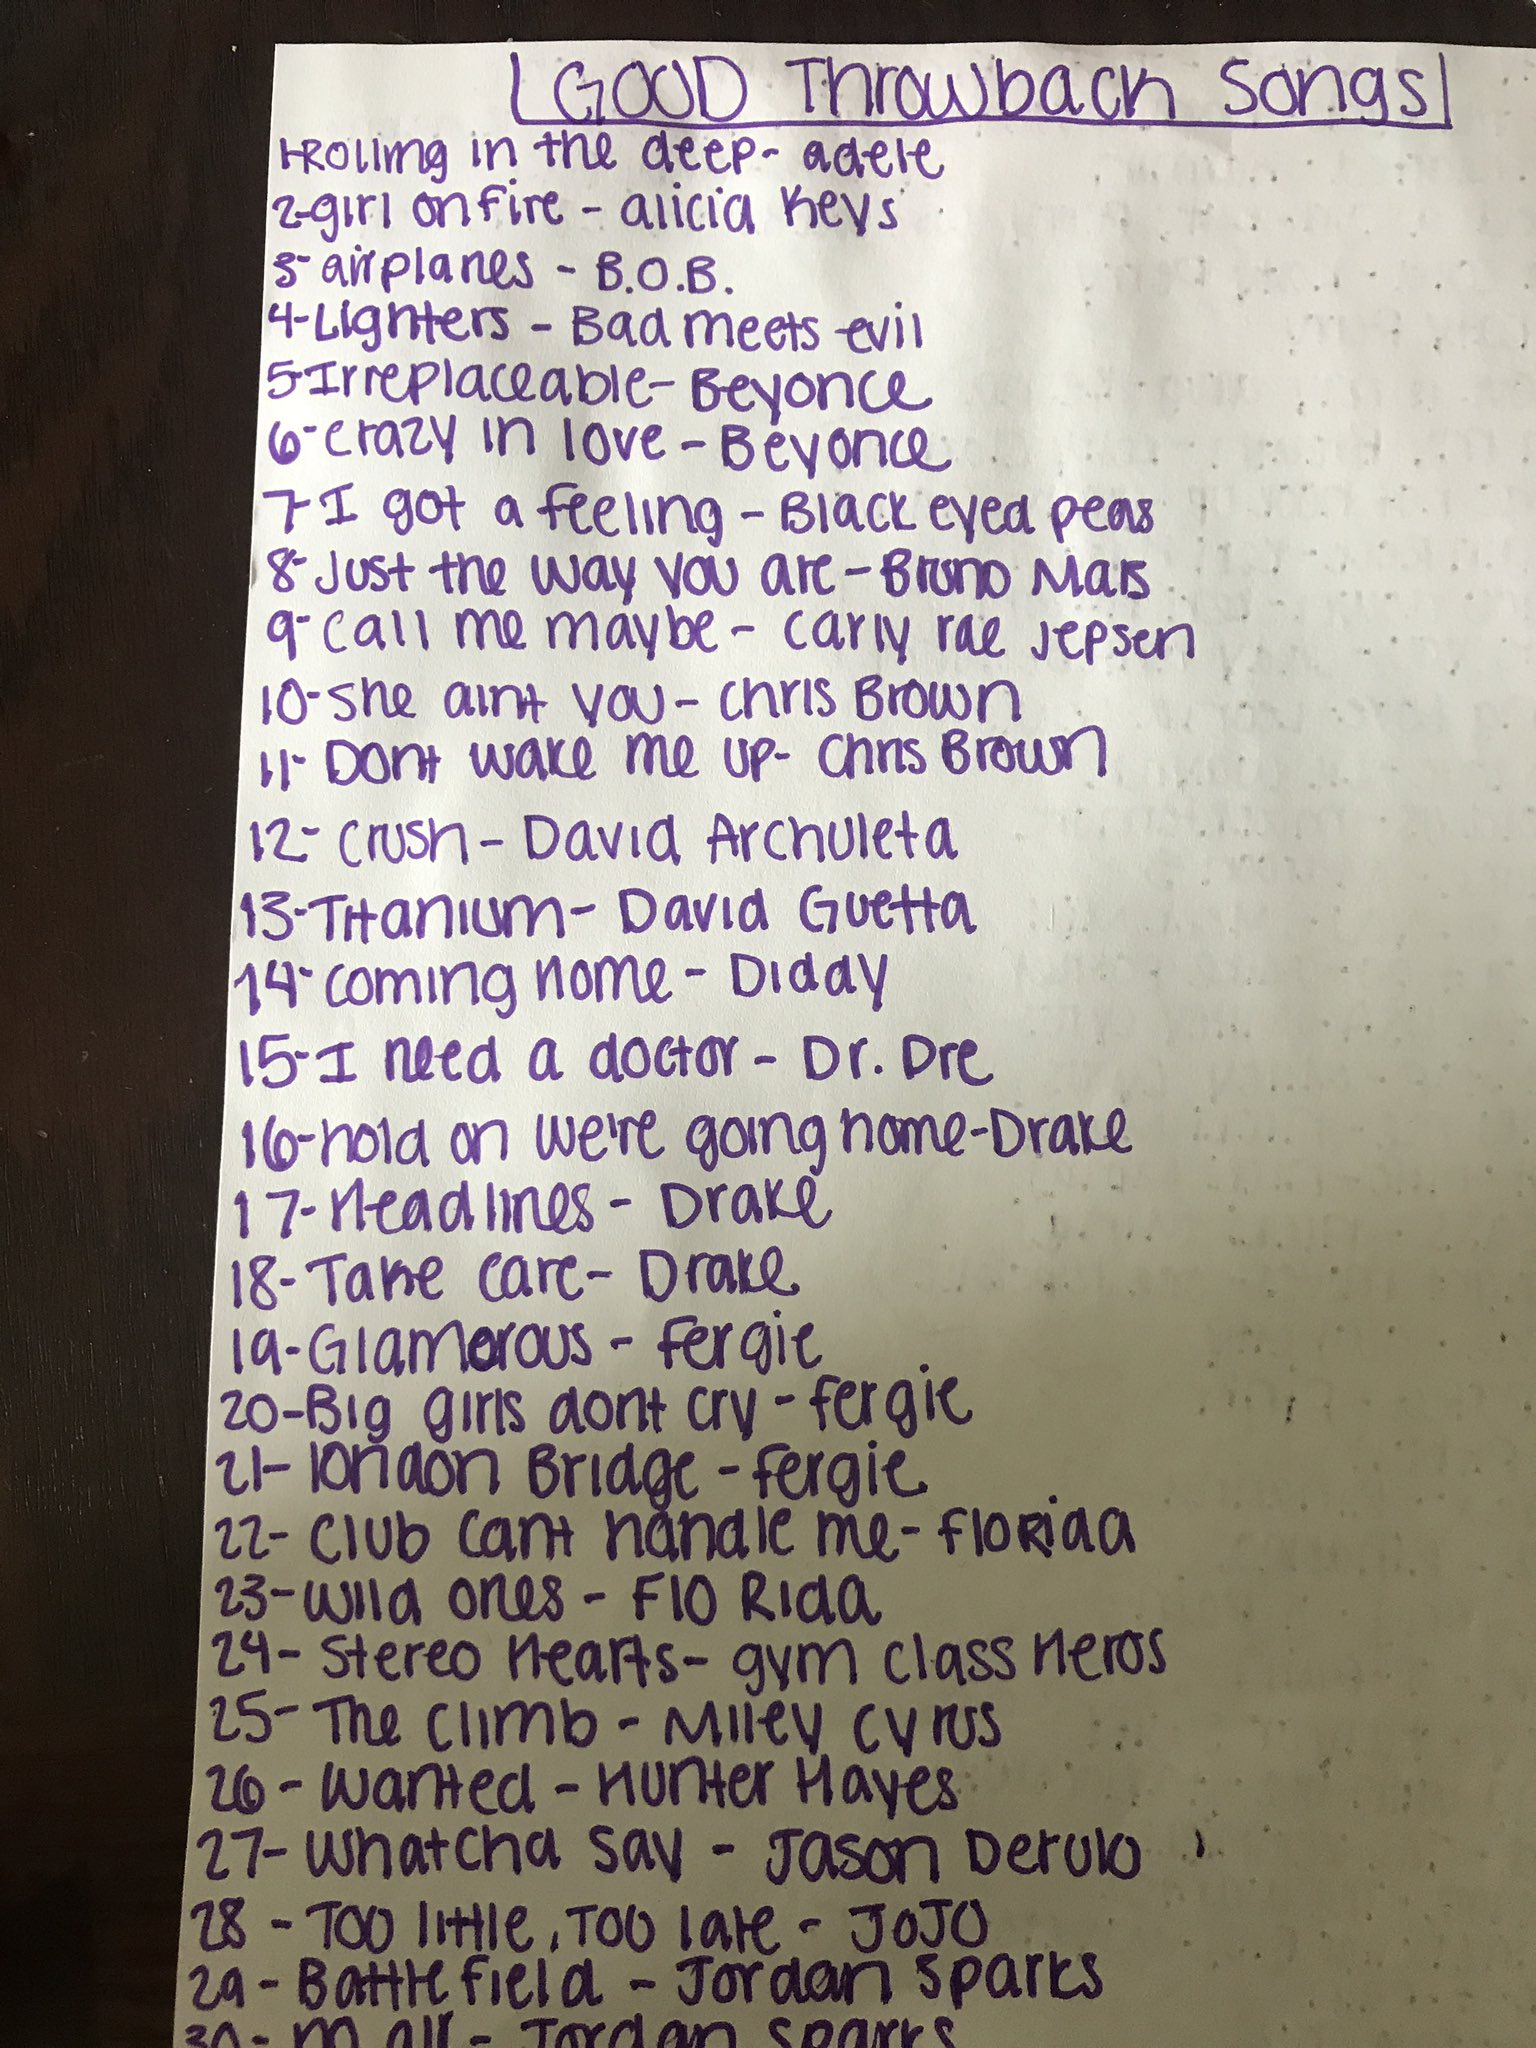 GOOD Throwback Songs
1-Rolling in the deep- adele
2-girl on fire - alicia keys
3-airplanes - B.O.B.
4-Lighters - Bad meets evil
5-Irreplaceable- Beyonce
6-crazy in love - Beyonce
7-I got a feeling - Black eyed peas
8-Just the way you are - Bruno Mars
9-call me maybe - carly rae jepsen
10-she aint you - chris Brown
11-Dont wake me up- Chris Brown
12-crush - David Archuleta
13-Titanium- David Guetta
14-coming home - Diddy
15-I need a doctor - Dr. Dre
16-hold on we're going home-Drake
17-Headlines - Drake
18-Take care- Drake
19-Glamorous - Fergie
20-Big girls dont cry - fergie
21-london Bridge - fergie
22-Club cant handle me- floRida
23-wild ones - Flo Rida
24-Stereo Hearts- gym class Heros
25-The climb - Miley cyrus
26-wanted - Hunter Hayes
27-whatcha say - Jason Derulo
28-Too little, Too late - JoJo
29-Battlefield - Jordan Sparks
30- - Jordan sparks